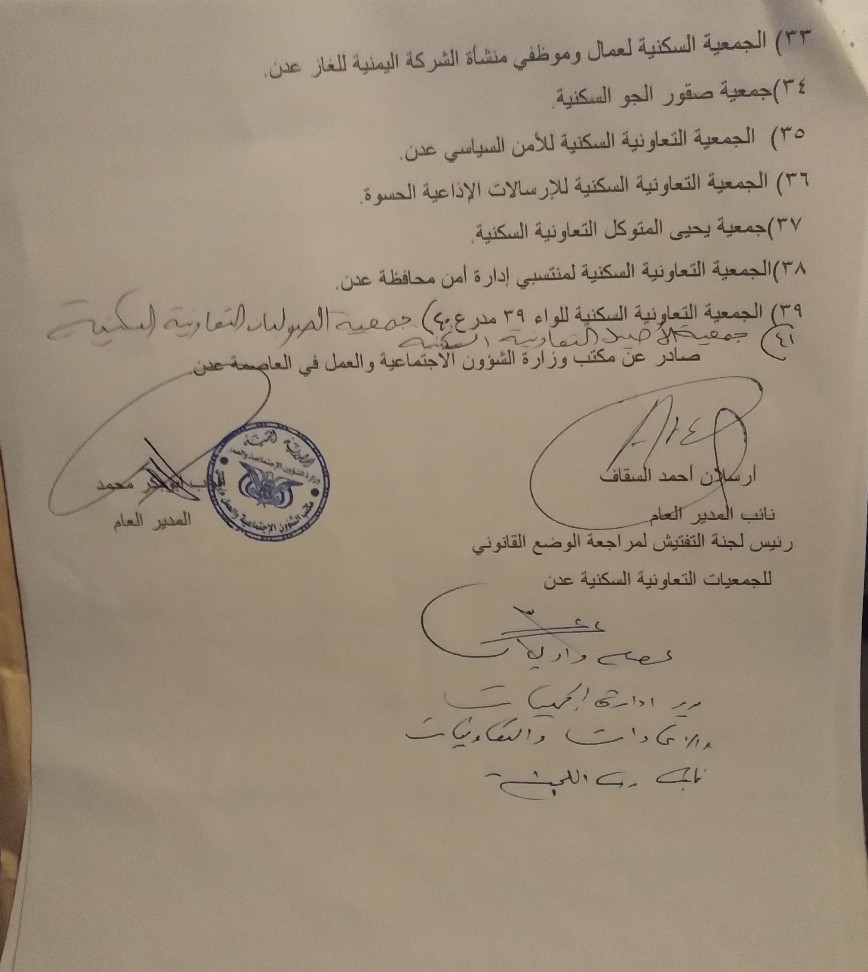 ٣٣) الجمعية السكنية لعمال وموظفي منشأة الشركة اليمنية للغاز عدن.
٣٤)جمعية صقور الجو السكنية.
٣٥) الجمعية التعاونية السكنية للأمن السياسي عدن.
٣٦) الجمعية التعاونية السكنية للإرسالات الإذاعية الحسوة.
٣٧)جمعية يحيى المتوكل التعاونية السكنية.
٣٨)الجمعية التعاونية السكنية لمنتسبي إدارة أمن محافظة عدن.
٣٩) الجمعية التعاونية السكنية للواء ٣٩ مدرع. ٤٠) جمعية الصولبان التعاونية السكنية
٤١) جمعية التعاونية السكنية
صادر عن مكتب وزارة الشؤون الاجتماعية والعمل في العاصمة عدن
أرسلان أحمد السقاف
نائب المدير العام
رئيس لجنة التفتيش لمراجعة الوضع القانوني
للجمعيات التعاونية السكنية عدن
أبوبكر محمد
المدير العام
الجمهورية اليمنية
وزارة الشؤون الاجتماعية والعمل
مكتب الشؤون الاجتماعية والعمل
مدير ادارة الجمعيات
والاتحادات والتعاونيات
نائب رئيس اللجنة